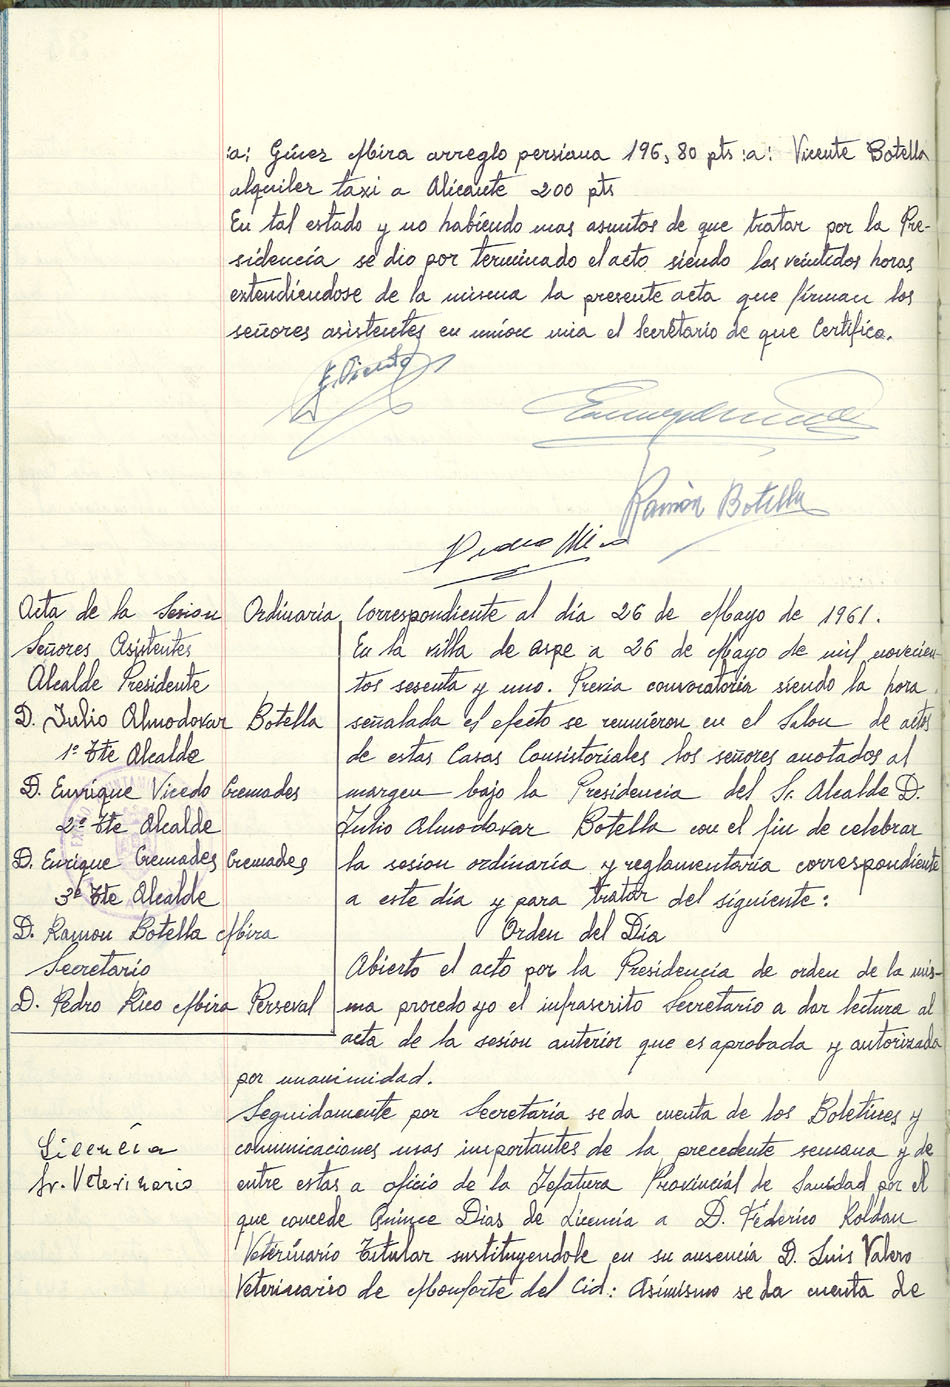 :a: Ginez Mira arreglo persiana 196,80 pts :a: Vicente Botella
alquiler taxi a Alicante 200 pts
En tal estado y no habiendo mas asuntos de que tratar por la Pre-
sidencia se dio por terminado el acto siendo las veintidos horas
extendiendose de la misma la presente acta que firman los
señores asistentes en union mia el Secretario de que Certifico.
E. Vicedo
Ramón Botella
Pedro Rico
Acta de la Sesion Ordinaria Correspondiente al día 26 de Mayo de 1961.
Señores Asistentes
Alcalde Presidente
D. Julio Almodovar Botella
1º Tte Alcalde
D. Enrique Vicedo Cremades
2º Tte Alcalde
D. Enrique Cremades Cremades
3º Tte Alcalde
D. Ramon Botella Mira
Secretario
D. Pedro Rico Mira Perseval
En la villa de Aspe a 26 de Mayo de mil novecien-
tos sesenta y uno. Previa convocatoria siendo la hora
señalada el efecto se reunieron en el Salon de actos
de estas Casas Consistoriales los señores anotados al
margen bajo la Presidencia del Sr. Alcalde D.
Julio Almodovar Botella con el fin de celebrar
la sesion ordinaria y reglamentaria correspondiente
a este día y para tratar del siguiente:
Orden del Día
Abierto el acto por la Presidencia de orden de la mis-
ma procedo yo el infrascrito Secretario a dar lectura al
acta de la sesion anterior que es aprobada y autorizada
por unanimidad.
Licencia
Sr. Veterinario
Seguidamente por Secretaría se da cuenta de los Boletines y
comunicaciones mas importantes de la precedente semana y de
entre estas a oficio de la Jefatura Provincial de Sanidad por el
que concede Quince Dias de Licencia a D. Féderico Roldan
Veterinario Titular sustituyendole en su ausencia D. Luis Valero
Veterinario de Monforte del Cid: Asimismo se da cuenta de